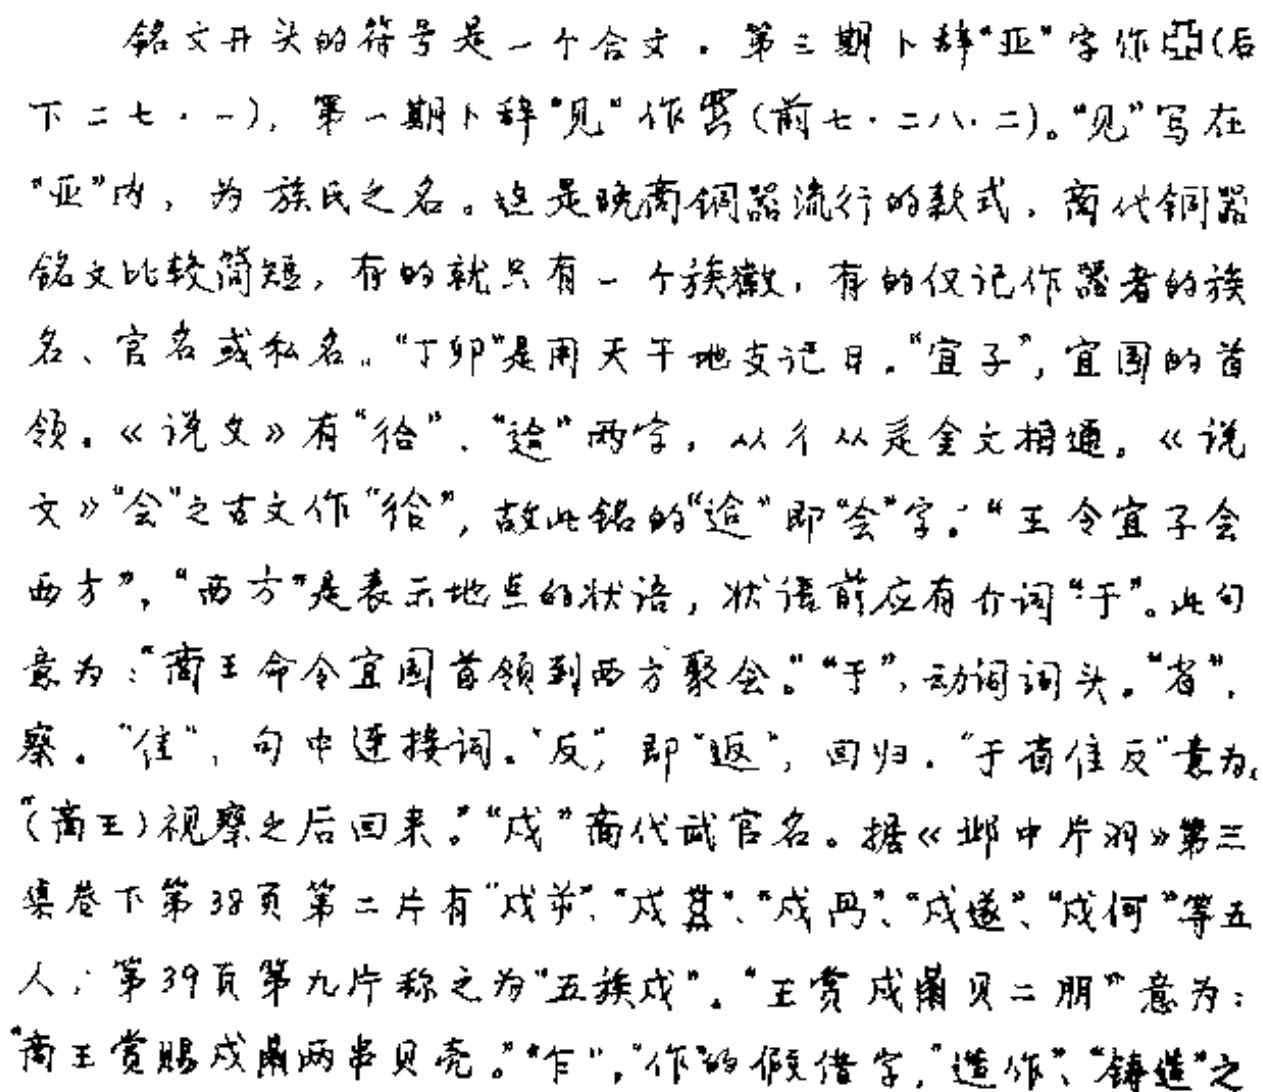 铭文开头的符号是一个合文。第三期卜辞“亚”字作亞(后
下二七·一),第一期卜辞“见”作(前七·二八·二)。“见”写在
“亚”内,为族氏之名。这是晚商铜器流行的款式,商代铜器
铭文比较简短,有的就只有一个族徽,有的仅记作器者的族
名、官名或私名。“丁卯”是用天干地支记日。“宜子”,宜国的首
领。《说文》有“㣛”、“迨”两字,从彳从辵金文相通。《说
文》“会”之古文作“㣛”,故此铭的“迨”即“会”字。“王令宜子会
西方”,“西方”是表示地点的状语,状语前应有介词“于”。此句
意为:“商王命令宜国首领到西方聚会。”“于”,动词词头。“省”,
察。“隹”,句中连接词。“反”,即“返”,回归。“于省隹反”意为,
“(商王)视察之后回来。”“戍”商代武官名。据《邺中片羽》第三
集卷下第38页第二片有“戍屰”、“戍其”、“戍冎”、“戍逐”、“戍何”等五
人;第39页第九片称之为“五族戍”。“王赏戍贝二朋”意为:
“商王赏赐戍两串贝壳。”“乍”,“作”的假借字,“造作”、“铸造”之